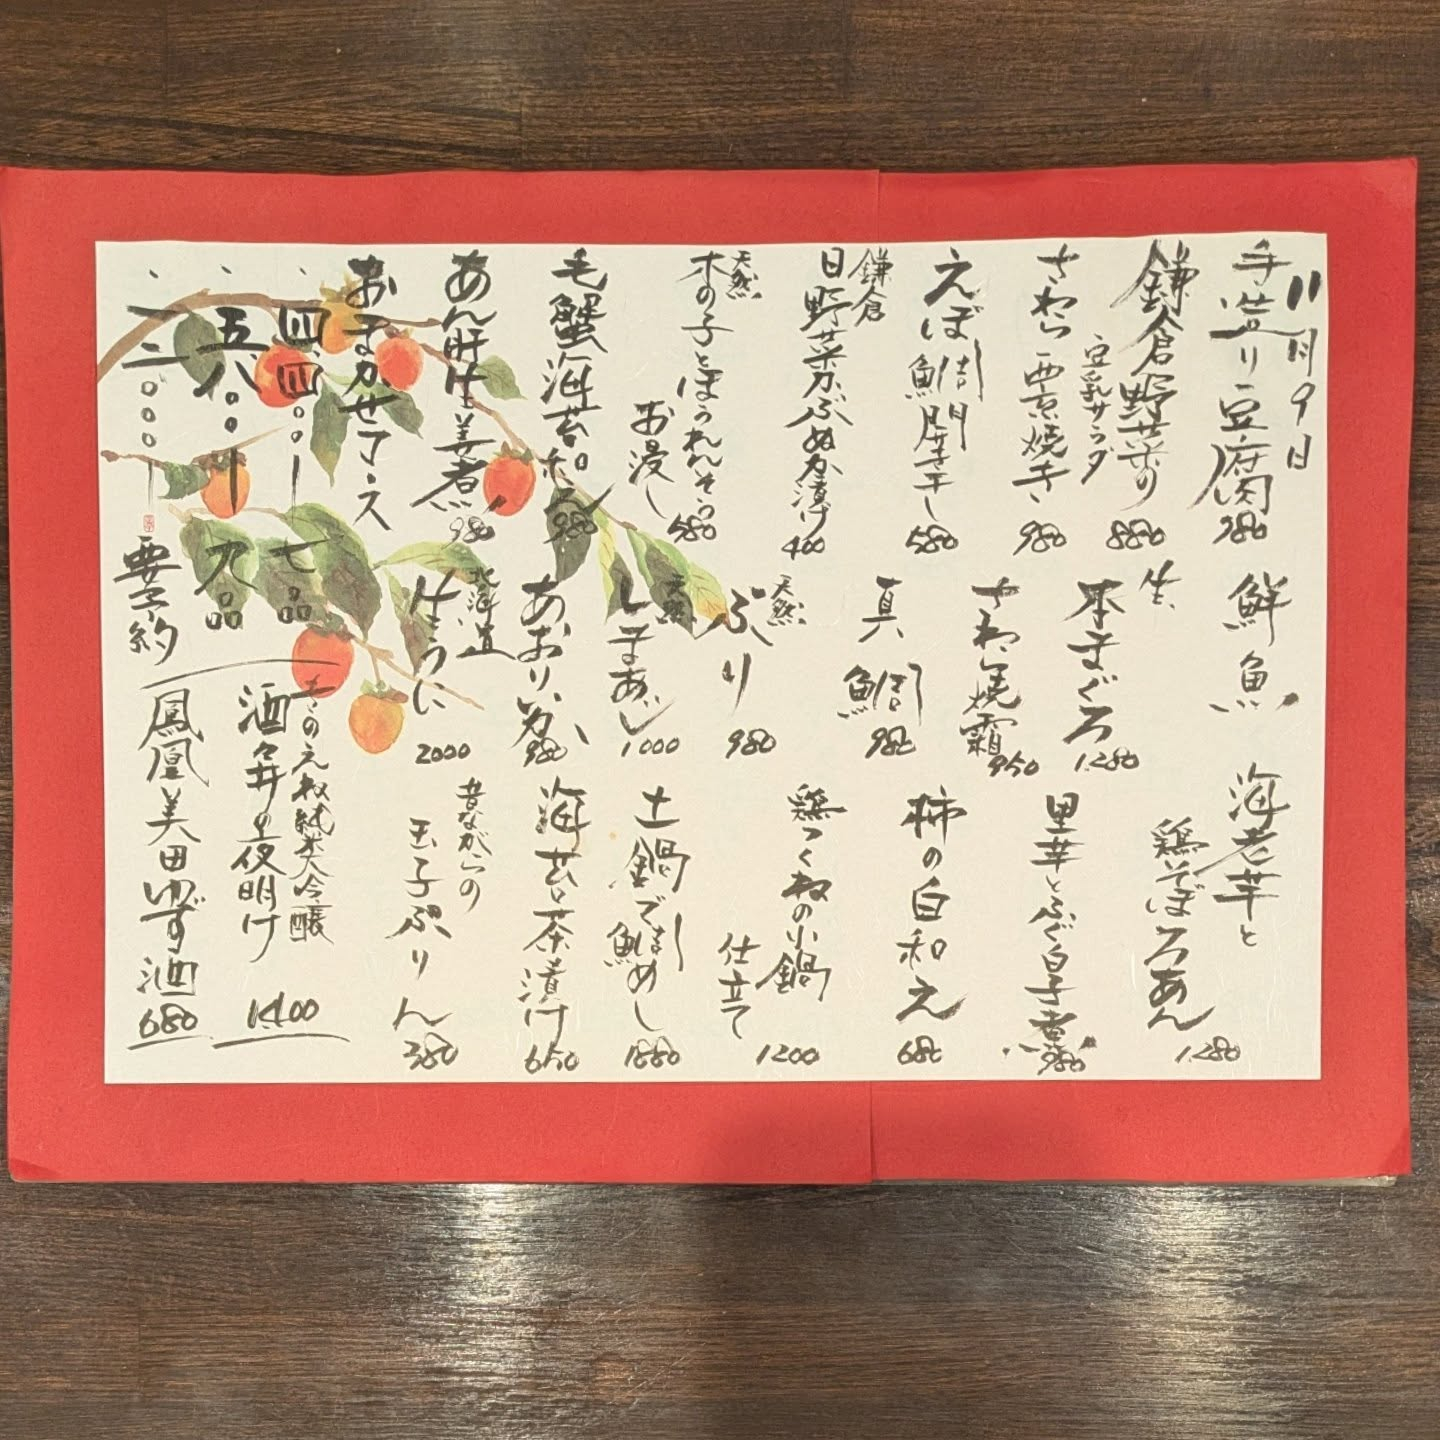 11月9日
手造り豆腐
980
鎌倉野菜の
豆乳サラダ
880
さわら西京焼き
980
えぼ鯛開き干し
580
鎌倉
日野菜かぶぬか漬け
400
天然
木の子とほうれんそう
お浸し
580
毛蟹海苔和え
980
あん肝生姜煮
980
おまかせコース
四、四〇〇ー 七品
五、八〇〇ー 九品
一二、〇〇〇ー 要予約
鮮魚
生
本まぐろ
1,280
さわら焼霜
950
真鯛
980
天然
ぶり
980
天然
しまあじ
1000
あおりいか
980
北海道
生うに
2000
海老芋と
鶏そぼろあん
1,280
里芋とふぐ白子煮
980
柿の白和え
680
鶏つくねの小鍋
仕立て
1200
土鍋で鯛めし
1880
海苔茶漬け
650
昔ながらの
玉子ぷりん
380
きのえね純米大吟醸
酒々井の夜明け
1,400
鳳凰美田ゆず酒
680